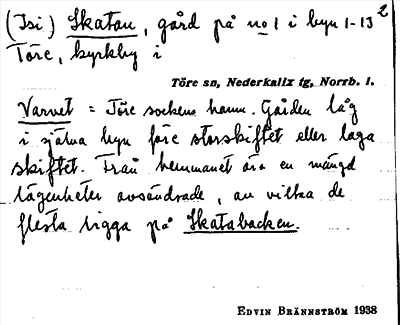 (Isi) Skatan, gård på no 1 i byn 1-13²
Töre, kyrkby i
Töre sn, Nederkalix tg, Norrb. l.
Varvet = Töre sockens hamn. Gården låg
i själva byn före storskiftet eller laga
skiftet. Från hemmanet äro en mängd
lägenheter avsöndrade, av vilka de
flesta ligga på Skatabacken.
EDVIN BRÄNNSTRÖM 1938